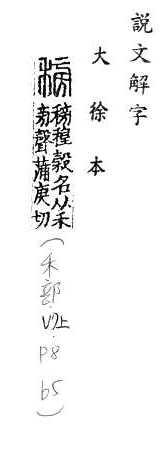 說文解字
大徐本
䅭程穀名从禾
旁聲蒲庚切
(禾部.V7上.P8 b5)